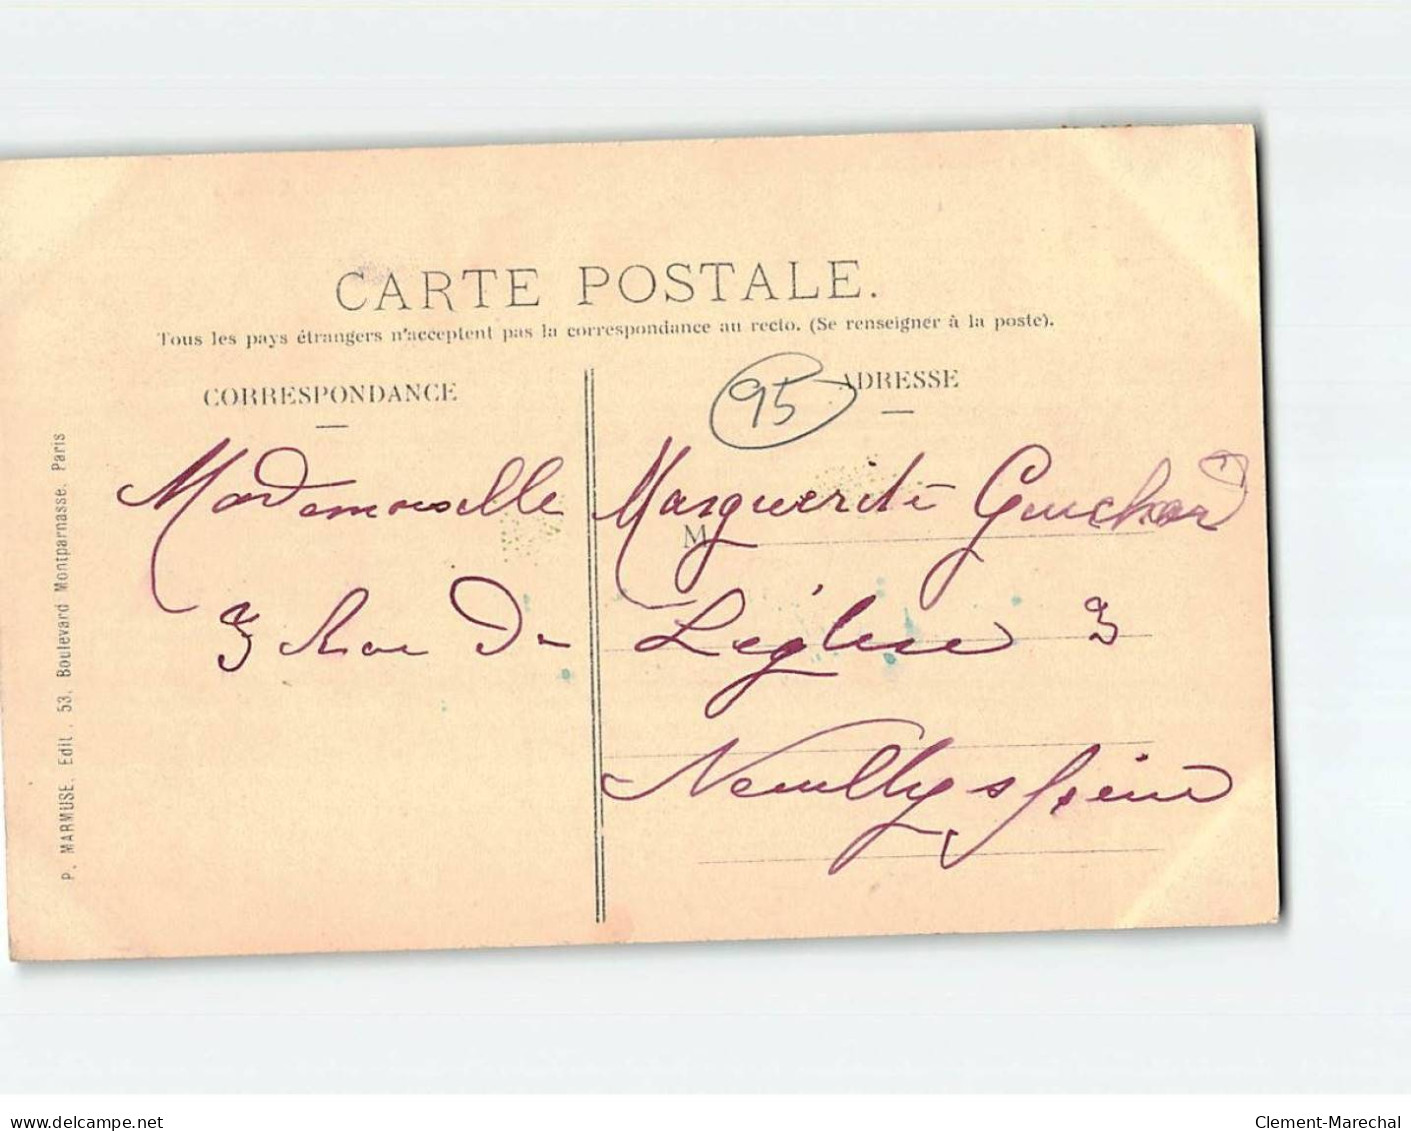 CARTE POSTALE.
Tous les pays étrangers n'acceptent pas la correspondance au recto. (Se renseigner à la poste).
CORRESPONDANCE
95
ADRESSE
Mademoiselle Marguerite
M
3 Rue De L'église 3
Neuilly s Seine
P. MARMUSE. Edit. 53, Boulevard Montparnasse. Paris
www.delcampe.net
Clement-Marechal